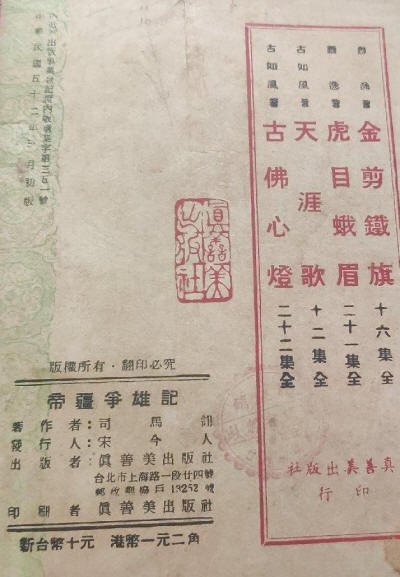 蕭逸著 金剪鐵旗 十六集全
蕭逸著 虎目蛾眉 二十一集全
古如風著 天涯歌 十二集全
古如風著 古佛心燈 二十二集全
眞善美出版社
印行
眞善美
出版社
號一五三第字業臺
中華民國五十二年 月初版
版權所有·翻印必究
帝疆爭雄記
著作者:司馬翎
發行人:宋今人
出版者:眞善美出版社
台北市上海路一段廿四號
郵政劃撥戶13252號
印刷者 眞善美出版社
新台幣十元 港幣一元二角